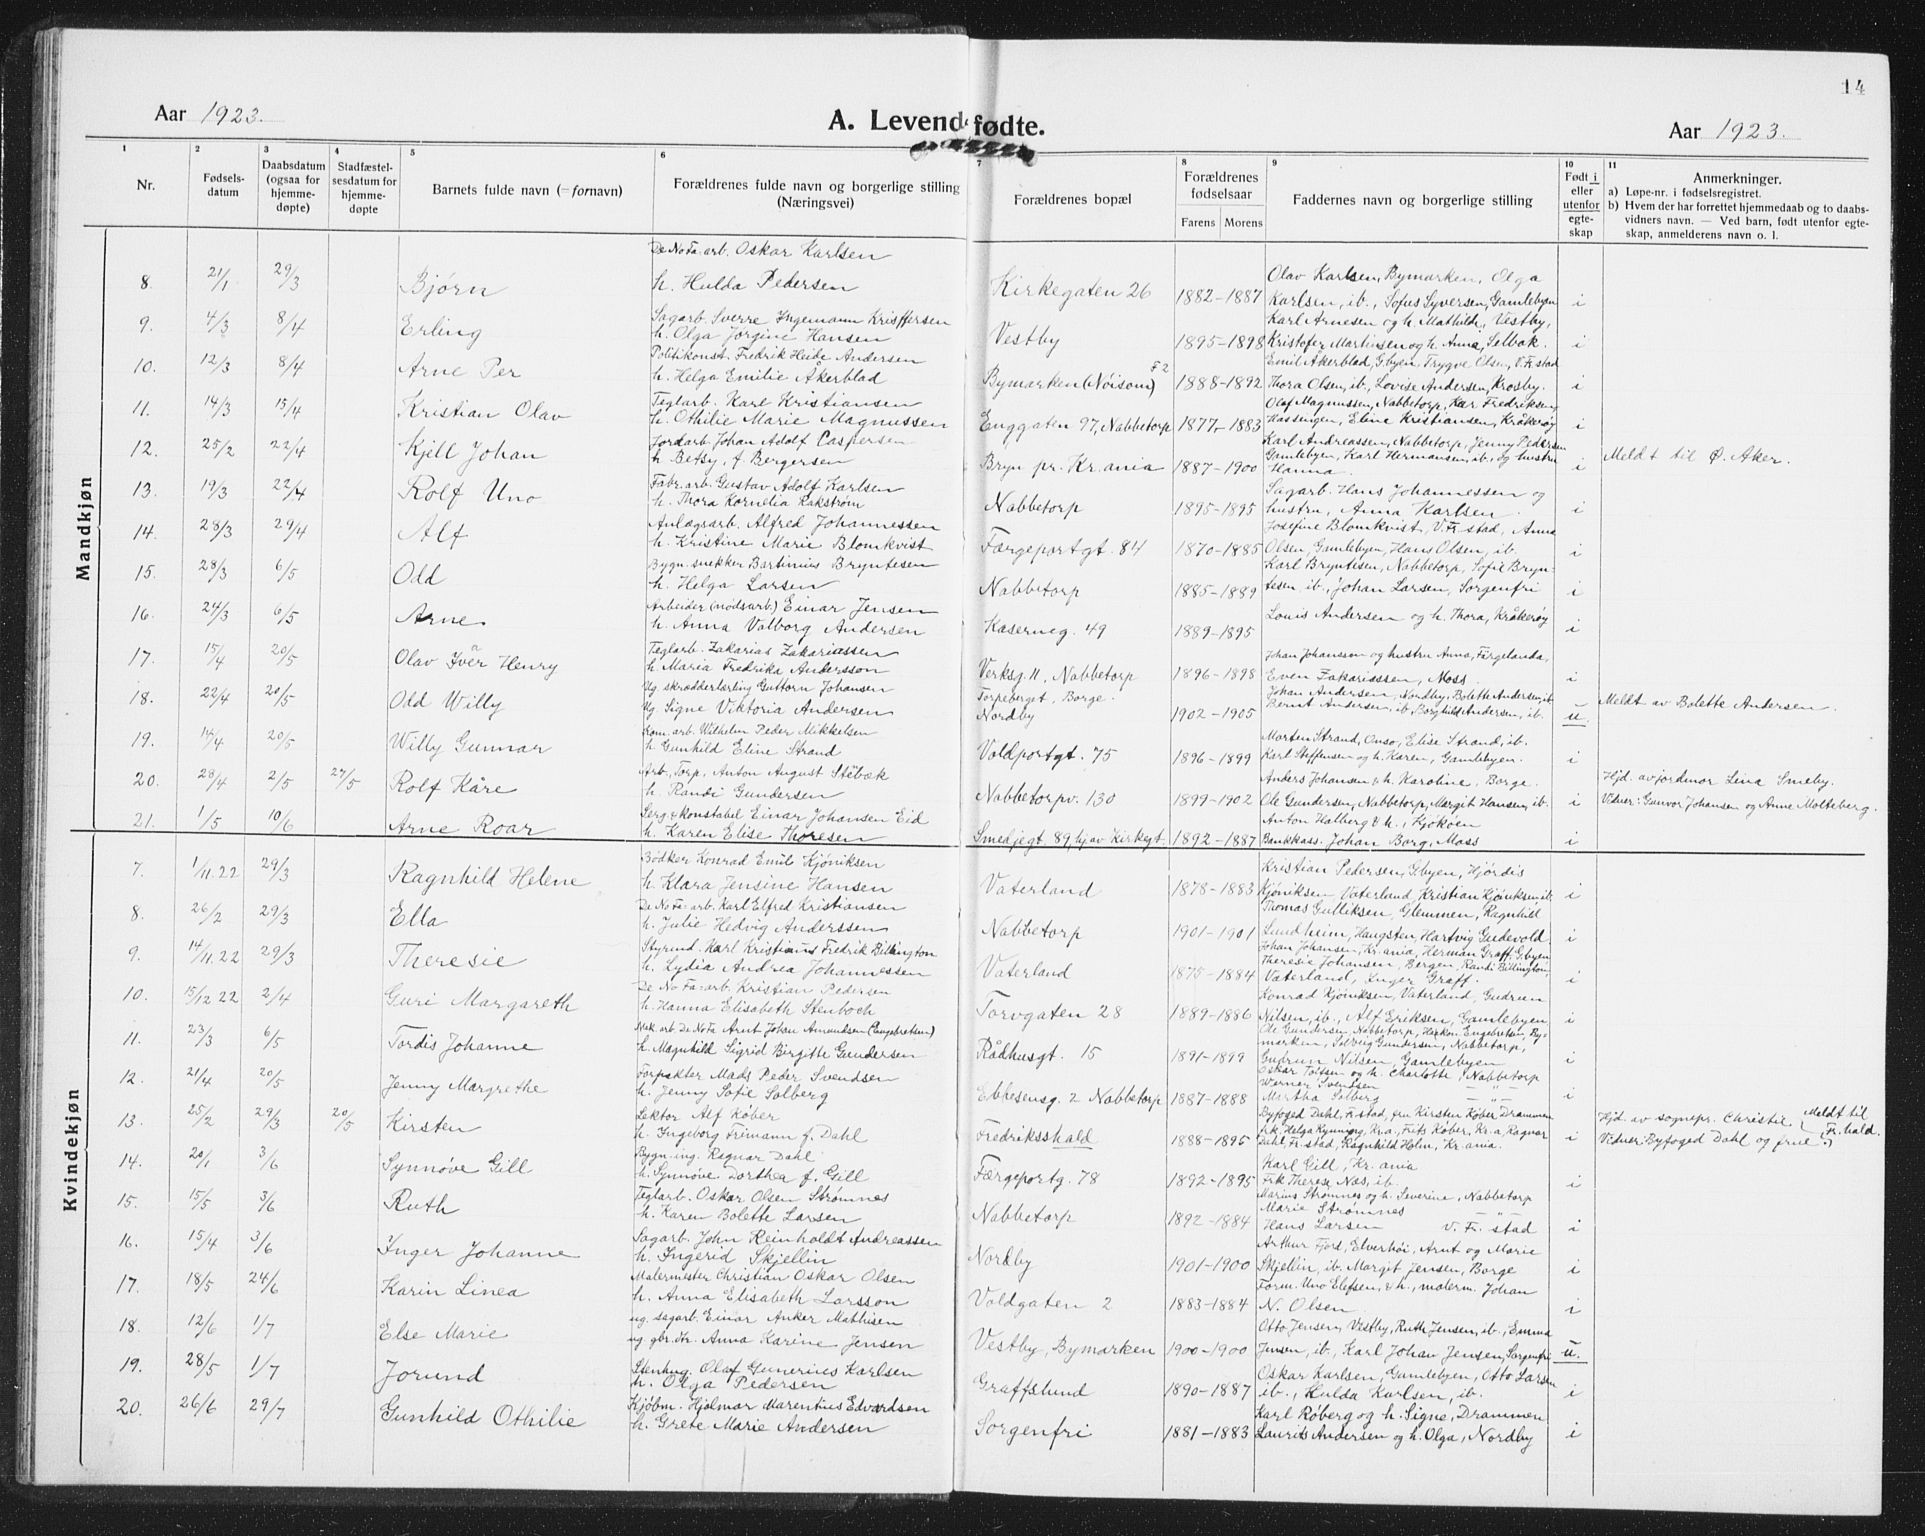 14
Aar 1923.
A. Levende fødte.
Aar 1923.
1 2 3 4 5 6 7 8 9 10 11
Nr.
Fødsels-
datum
Daabsdatum
(ogsaa for
hjemme-
døpte)
Stadfæstel-
sesdatum for
hjemme-
døpte
Barnets fulde navn (= fornavn)
Forældrenes fulde navn og borgerlige stilling
(Næringsvei)
Forældrenes bopæl
Forældrenes
fødselsaar
Farens Morens
Faddernes navn og borgerlige stilling
Født i
eller
utenfor
egte-
skap
Anmerkninger.
a) Løpe-nr. i fødselsregistret.
b) Hvem der har forrettet hjemmedaab og to daabs-
vidners navn. — Ved barn, født utenfor egte-
skap, anmelderens navn o. l.
Mandkjøn
De No Fa. arb. Oskar Karlsen
Olav Karlsen, Bymarken, Olga
8. 21/1 29/3 Bjørn h. Hulda Pedersen Kirkegaten 26 1882-1887 Karlsen, ib., Sofus Syversen, Gamlebyen i
Sagarb. Sverre Ingemann Kristffersen Karl Arnesen og h. Mathilde, Vestby,
9. 4/3 8/4 Erling h. Olga Jørgine Hansen Vestby 1895-1898 Kristofer Martinsen og h. Anna, Selbak. i
Politikonst. Fredrik Heide Andersen Emil Akerblad, Gbyen, Trygve Olsen, V. Fr.stad
10. 12/3 8/4 Arne Per h. Helga Emilie Akerblad Bymarken (Nöisom) F2 1888-1892 Thora Olsen, ib., Lovise Andersen, Krosby. i
Teglarb. Karl Kristiansen Olaf Magnussen, Nabbetorp, Kaer Fredriksen,
11. 14/3 15/4 Kristian Olav h. Othilie Marie Magnussen Enggaten 97, Nabbetorp 1877-1883 Hassingen, Eline Kristiansen, Kråkerøy i
Jordarb. Johan Adolf Caspersen Karl Andreassen, Nabbetorp, Jenny Pedersen
12. 25/2 22/4 Kjell Johan h. Betsy, f. Bergersen Bryn pr. Kr.ania 1887-1900 Gamlebyen, Karl Hermansen, ib., og hustru Hanna. i Meldt til Ø. Aker.
Fabr. arb. Gustav Adolf Karlsen Sagarb. Hans Johannessen og
13. 19/3 22/4 Rolf Uno h. Thora Kornelia Rakström Nabbetorp 1895-1895 hustru, Anna Karlsen. i
Anlægsarb. Alfred Johannessen Josefine Blomkvist, V. Fr. stad, Anna
14. 28/3 29/4 Alf h. Kristine Marie Blomkvist Færgeportgt. 84 1870-1885 Olsen, Gamlebyen, Hans Olsen, ib. i
Bygn. snekker Bartinius Bryntesen Karl Bryntesen, Nabbetorp, Sofie Bryn-
15. 28/3 6/5 Odd h. Helga Larsen Nabbetorp 1885-1889 tesen ib., Johan Larsen, Sorgenfri i
Arbeider (nødsarb.) Einar Jensen
16. 24/3 6/5 Arne h. Anna Valborg Andersen Kaserneg. 49 1889-1895 Louis Andersen og h. Thora, Kråkerøy i
Teglarb. Zakarias Zakariassen Johan Johansson og hustru Anna, Färgelanda,
17. 15/4 20/5 Olav Ivar Henry h. Maria Fredrika Andersson Verksg. 11, Nabbetorp 1896-1898 Even Zakarisssen, Moss. i
Ug. skrædderlærling Guttorn Johansen Torpeberget, Borge. Johan Andersen, Nordby, Bolette Andersen, ib.
18. 22/4 20/5 Odd Willy Ug Signe Viktoria Andersen Nordby 1902-1905 Bernt Andersen, ib Borghild Andersen, ib. u. Meldt av Bolette Andersen.
Kom. arb. Wilhelm Peder Mikkelsen Morten Strand, Onsø, Elise Strand, ib.
19. 14/4 20/5 Willy Gunnar h. Gunhild Eline Strand Voldportgt. 75 1896-1899 Karl Steffensen og h. Karen, Gamlebyen. i
Arb. Torp. Anton August Stëbæk Anders Johansen & h. Karoline, Borge. Hjd. av jordmor Lina Smeby.
20. 28/4 2/5 27/5 Rolf Kåre h. Randi Gundersen Nabbetorpv. 130 1899-1902 Ole Gundersen, Nabbetorp, Margit Hansen, ib. i Vidner: Gunvor Johansen og Anne Molteberg.
Serg. & konstabel Einar Johansen Eid Anton Halberg & h., Kjøkøen
21. 1/5 10/6 Arne Roar h. Karen Elise Thoresen Smedjegt. 89, hj. av Kirkegt. 1892-1887 Bankkass. Johan Borg, Moss i
Kvindekjøn
Bödker Konrad Emil Kjöniksen Kristian Pedersen, Gbyen, Hjördis
7. 1/11.22 29/3 Ragnhild Helene h. Klara Jensine Hansen Vaterland 1878-1883 Kjöniksen, Vaterland, Kristian Kjöniksen ib. i
De No Fa-arb. Karl Elfred Kristiansen Thomas Gulliksen, Glemmen, Ragnhild
8. 26/2 29/3 Ella h. Julie Hedvig Anderssen Nabbetorp 1901-1901 Lundheim, Haugsten, Hartvig Gudevold. i
Styrmd. Karl Kristianus Fredrik Billington Johan Johansen, Kr.ania, Herman Graff, Gbyen
Theresie Johansen, Bergen, Randi Billington,
9. 14/11.22 29/3 Theresie h. Lydia Andrea Johannessen Vaterland 1875-1884 Vaterland, Inger Graff. i
De No Fa-arb. Kristian Pedersen Konrad Kjöniksen, Vaterland, Gudrun
10. 15/12 22 2/4 Guri Margareth h. Hanna Elisabeth Stenboch Torvgaten 28 1889-1886 Nilsen, ib., Alf Eriksen, Gamlebyen i
Mek. arb. De NoFa Arnt Johan Amundsen (Engebretsen) Ole Gundersen, Nabbetorp, Haakon Engebretsen By-
marken, Solveig Gundersen, Nabbetorp,
11. 23/3 6/5 Tordis Johanne h. Magnhild Sigrid Birgitte Gundersen Rådhusgt. 15 1891-1899 Gudrun Nilsen, Gamlebyen i
Forpakter Mads Peder Svendsen Oskar Tolfsen og h. Charlotte, Nabbetorp
Werner Svendsen
12. 21/4 20/5 Jenny Margrethe h. Jenny Sofie Solberg Ebbesensg. 2 Nabbetorp 1887-1888 Martha Solberg — " — i
Lektor Alf Köber Byfoged Dahl, Fr.stad, fru Kirsten Köber Drammen Hjd. av sognepr. Christie Meldt til
13. 25/2 29/3 20/5 Kirsten h. Ingeborg Frimann f. Dahl Fredrikshald 1888-1895 frk. Helga Kynning, Kr.a, Frits Köber, Kr.a, Ragnar Dahl, Fr.stad, Ragnhild Holm, Kr.ania. i Vidner: Byfoged Dahl og frue Fr.hald.
Bygn. ing. Ragnar Dahl Karl Gill, Kr. ania
14. 20/1 3/6 Synnøve Gill h. Synnöve Dorthea f. Gill Færgeportg. 78 1892-1895 Frk Therese Næs, ib. i
Teglarb. Oskar Olsen Strømnes Marius Strømnes og h. Severine, Nabbetorp
Marie Strømnes — " —
15. 15/5 3/6 Ruth h. Karen Bolette Larsen Nabbetorp 1892-1884 Hans Larsen V. Fr. stad i
Sagarb. John Reinholdt Andreassen Arthur Fjord, Elverhöi, Arnt og Marie
16. 15/4 3/6 Inger Johanne h. Ingerid Skjellin Nordby 1901-1900 Skjellin, ib. Margit Jensen, Borge i
Malermester Christian Oskar Olsen Form. Uno Elefsen, & h., malerm. Johan
17. 18/5 24/6 Karin Linea h. Anna Elisabeth Larsson Voldgaten 2 1883-1884 N. Olsen. i
ug. sagarb. Einar Anker Mathisen Otto Jensen, Vestby, Ruth Jensen, ib., Emma
18. 12/6 1/7 Else Marie ug gbr. dtr. Anna Karine Jensen Vestby, Bymarken 1900-1900 Jensen, ib., Karl Johan Jensen, Sorgenfri u.
Stenhug. Olaf Gunerius Karlsen Oskar Karlsen, Gamlebyen, Otto Larsen
19. 28/5 1/7 Jorund h. Olga Pedersen Graffslund 1890-1887 ib., Hulda Karlsen, ib. i
Kjøbm. Hjalmar Marentius Edvardsen Karl Röberg og h. Signe, Drammen
20. 26/6 29/7 Gunhild Othilie h. Grete Marie Andersen Sorgenfri 1881-1883 Laurits Andersen og h. Olga, Nordby i